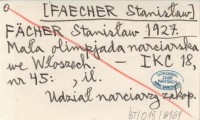 a [FAECHER Stanisław]
FÄCHER Stanisław 1927.
Mała olimpjada narciarska
we Włoszech. - IKC 18,
nr 45: , il.
Udział narciarzy zakop.